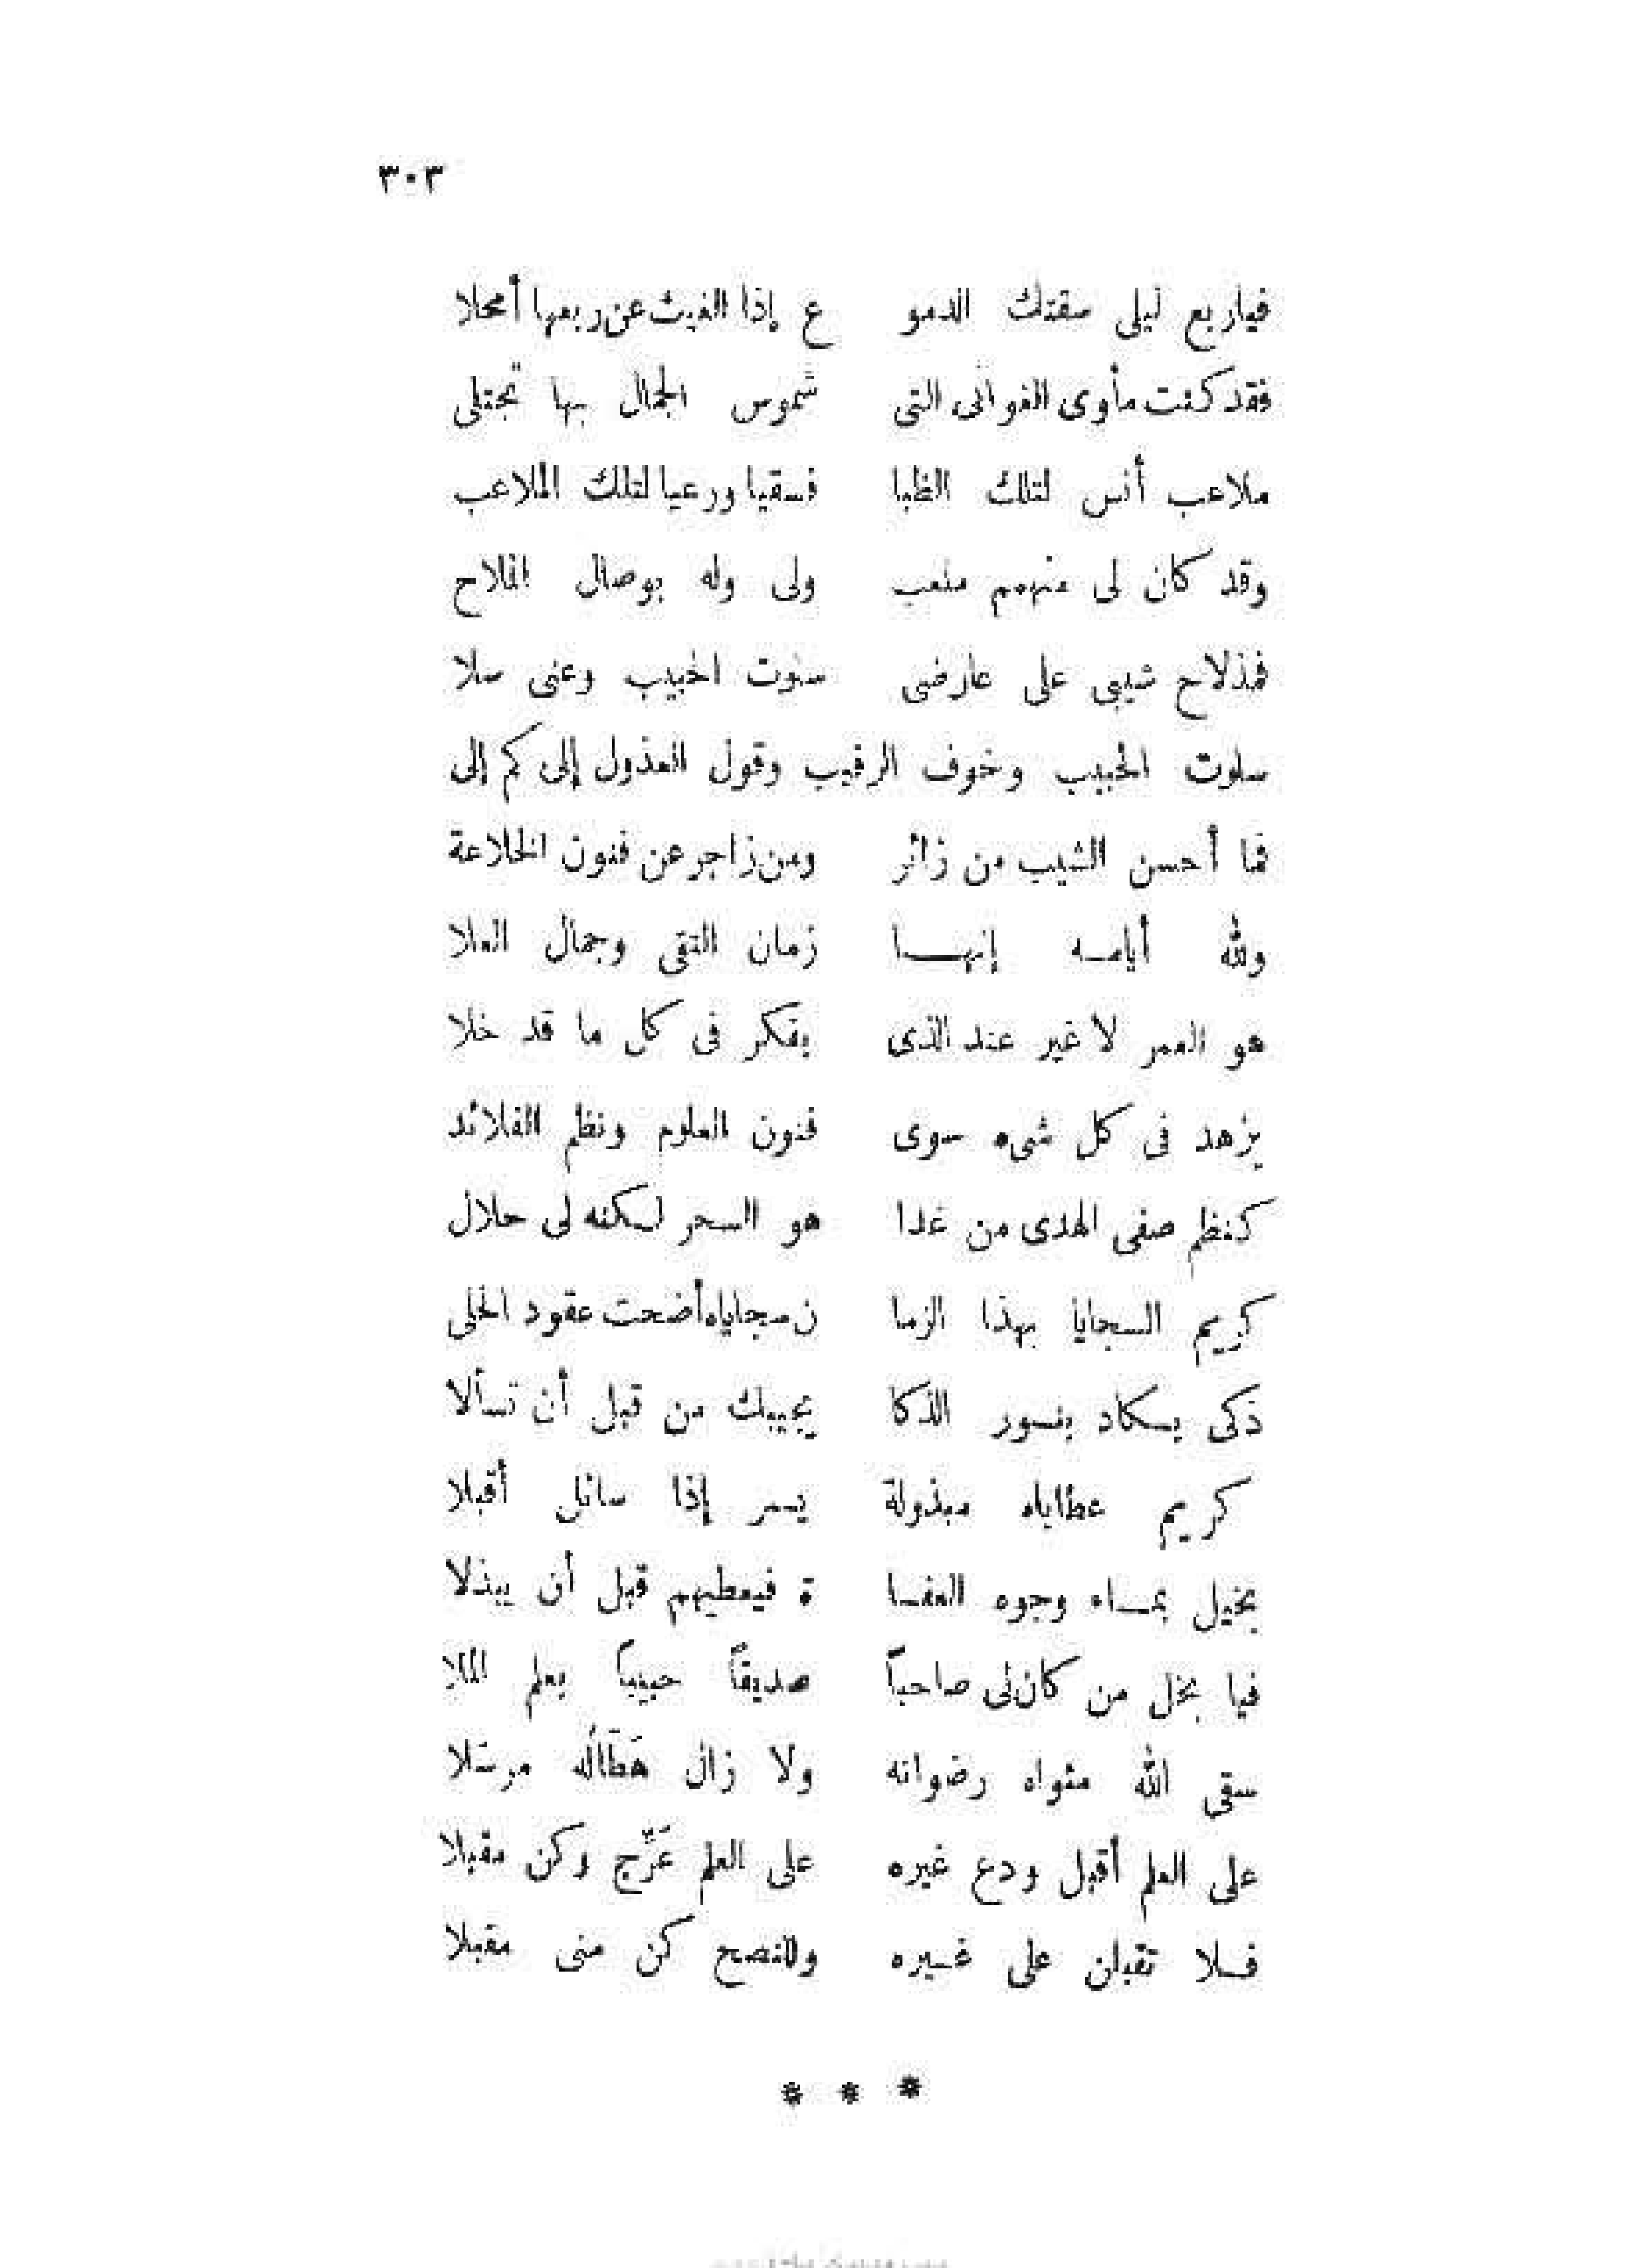 ٣٠٣
فياربع ليلى سقتك الدمو ع إذا الغيث عن ربعها أمحلا
فقد كنت مأوى الغوانى التى شموس الجمال بها تجتلى
ملاعب أنس لتلك الظبا فسقيا ورعيا لتلك الملاعب
وقد كان لى منهمم ملعب ولى وله بوصال الملاح
فمذلاح شيبى على عارضى سلوت الحبيب وعنى سلا
سلوت الحبيب وخوف الرقيب وقول العذول إلى كم إلى
فما أحسن الشيب من زائر ومن زاجر عن فنون الخلاعة
ولله أيامه إنها زمان التقى وجمال العلا
هو العمر لا غير عند الذى يفكر فى كل ما قد خلا
يزهد فى كل شىء سوى فنون العلوم ونظم القلائد
كنظم صفى الهدى من غدا هو السحر لكنه لى حلال
كريم السجايا بهذا الزما ن سجاياه أضحت عقود الحلى
ذكى يكاد بنور الذكا يجيبك من قبل أن تسألا
كريم عطاياه مبذولة يسر إذا سائل أقبلا
بخيل بماء وجوه العفا ة فيعطيهم قبل أن يبذلا
فيا بخل من كان لى صاحباً صديقاً حبيباً بعلم الملا
سقى الله مثواه رضوانه ولا زال هَطَّالُه مرسَلا
على العلم أقبل ودع غيره على العلم عَرِّج وكن مقبلا
فلا تقبلن على غيره وللنصح كن منى مقبلا
* * *